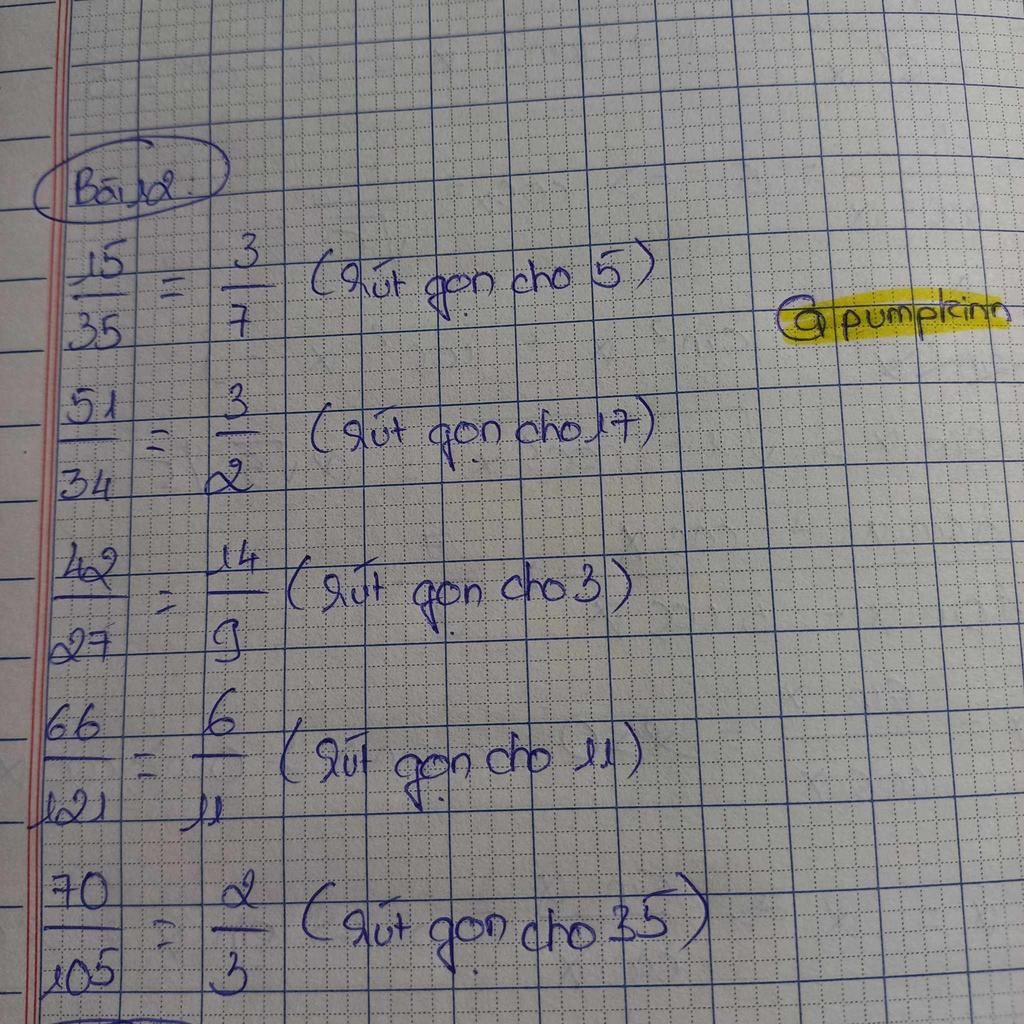 Bài 2:
15/35 = 3/7 (Rút gọn cho 5)
@pumpkinn
51/34 = 3/2 (Rút gọn cho 17)
42/27 = 14/9 (Rút gọn cho 3)
66/121 = 6/11 (Rút gọn cho 11)
70/105 = 2/3 (Rút gọn cho 35)